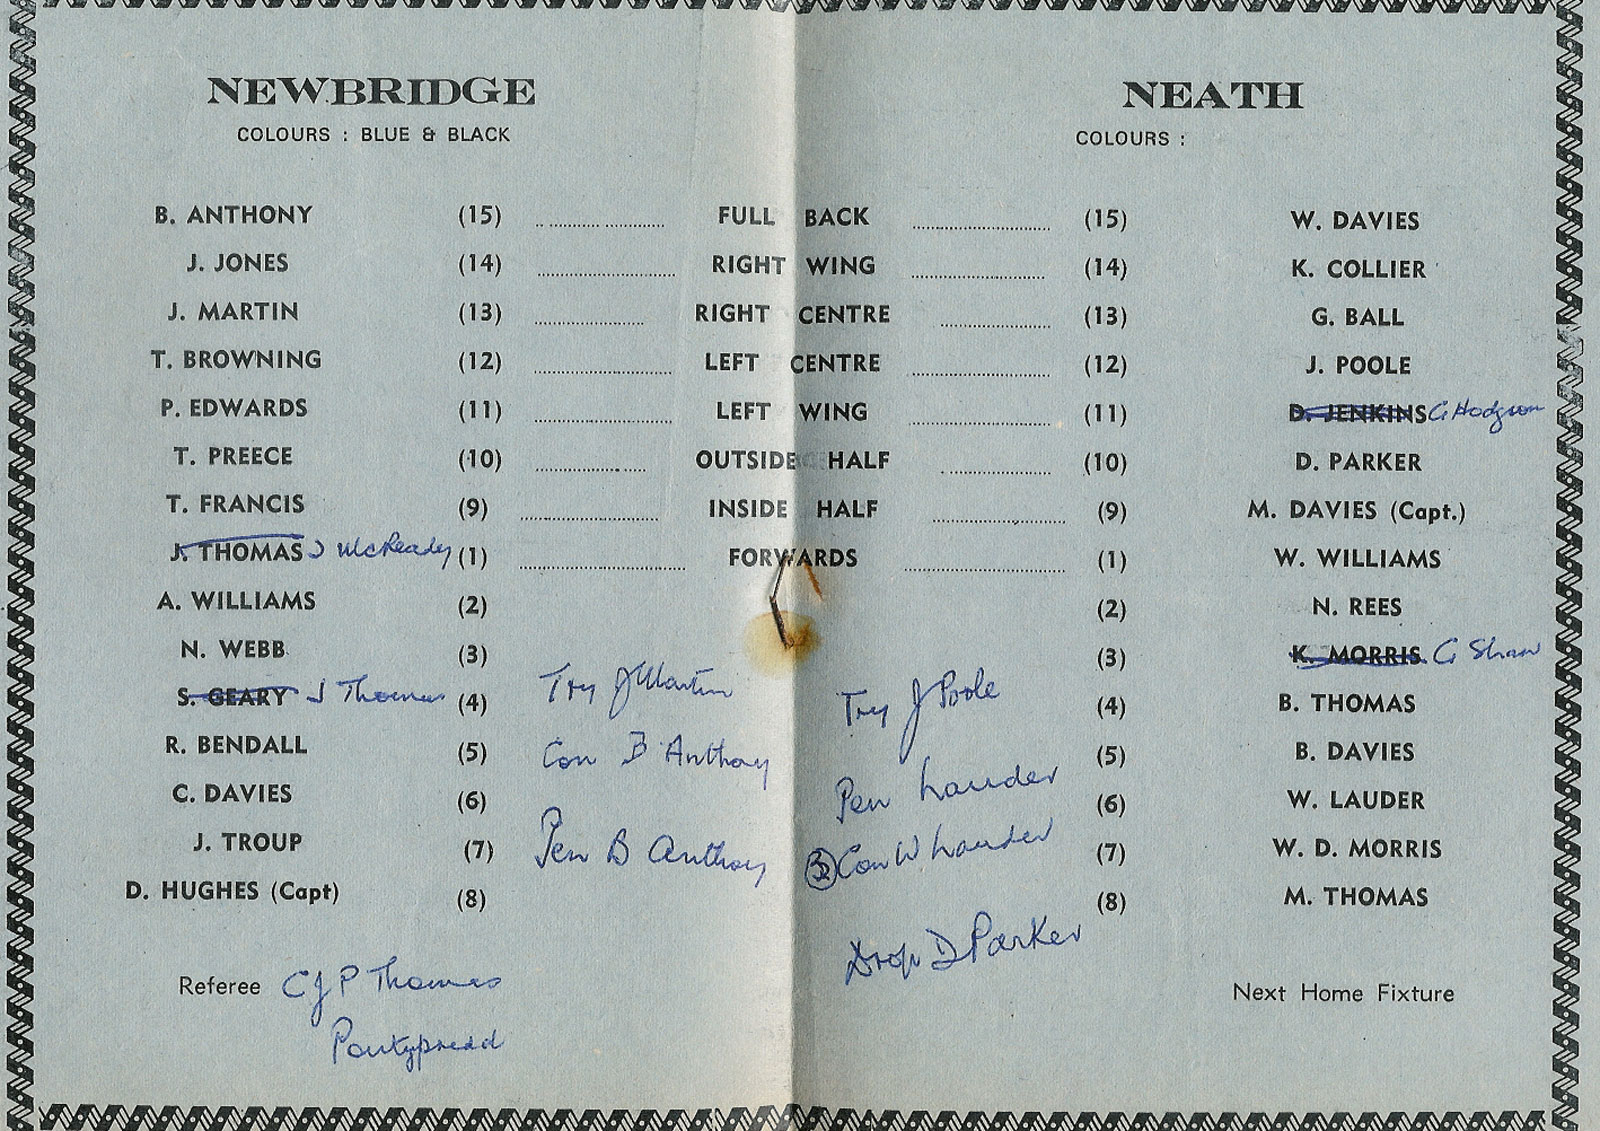 NEWBRIDGE
COLOURS : BLUE & BLACK
NEATH
COLOURS :
B. ANTHONY (15) FULL BACK (15) W. DAVIES
J. JONES (14) RIGHT WING (14) K. COLLIER
J. MARTIN (13) RIGHT CENTRE (13) G. BALL
T. BROWNING (12) LEFT CENTRE (12) J. POOLE
P. EDWARDS (11) LEFT WING (11) D. JENKINS G Hodgson
T. PREECE (10) OUTSIDE HALF (10) D. PARKER
T. FRANCIS (9) INSIDE HALF (9) M. DAVIES (Capt.)
J. THOMAS J McReady (1) FORWARDS (1) W. WILLIAMS
A. WILLIAMS (2) (2) N. REES
N. WEBB (3) (3) K. MORRIS G Shaw
S. GEARY J Thomas (4) Try J Martin Try J Poole (4) B. THOMAS
R. BENDALL (5) Con B Anthony (5) B. DAVIES
C. DAVIES (6) Pen Lauder (6) W. LAUDER
J. TROUP (7) Pen B Anthony Con W Lauder (7) W. D. MORRIS
D. HUGHES (Capt) (8) (8) M. THOMAS
Drop D Parker
Referee C J P Thomas
Pontypridd
Next Home Fixture